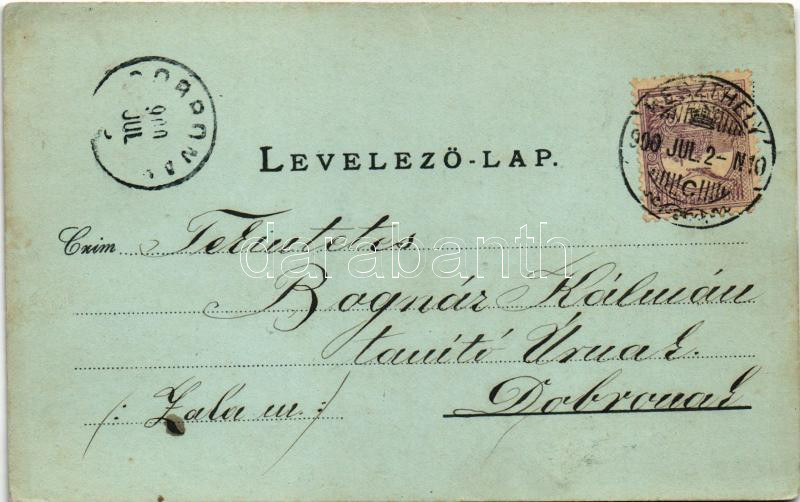 DOBRONAK
900
JUL
KESZTHELY
900 JUL. 2 - N10
C
LEVELEZŐ-LAP.
Czim Tekintetes
darabanth
Bognár Kálmán
tanító Úrnak.
Dobronak
(: Zala m. :)